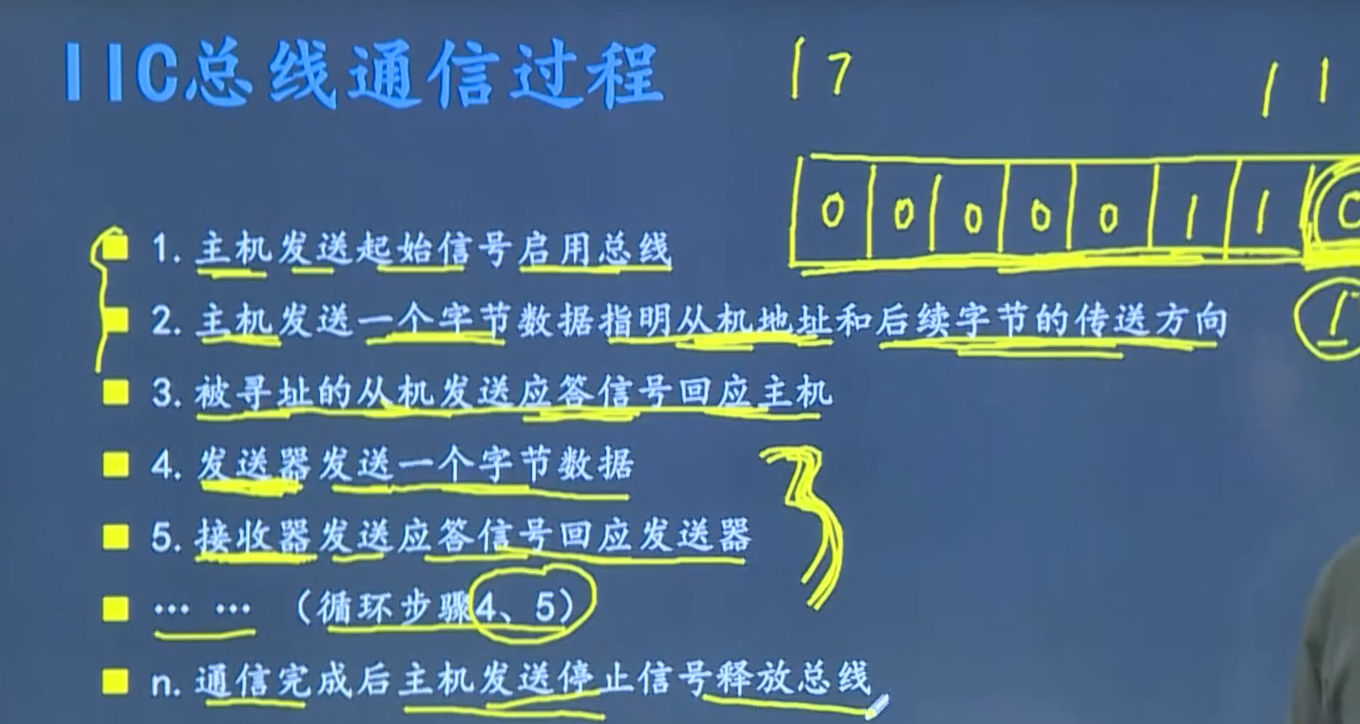 IIC总线通信过程
1 7
1 1
0 0 0 0 0 1 1 0
1. 主机发送起始信号启用总线
2. 主机发送一个字节数据指明从机地址和后续字节的传送方向
1
3. 被寻址的从机发送应答信号回应主机
4. 发送器发送一个字节数据
3
5. 接收器发送应答信号回应发送器
… … （循环步骤4、5）
n. 通信完成后主机发送停止信号释放总线